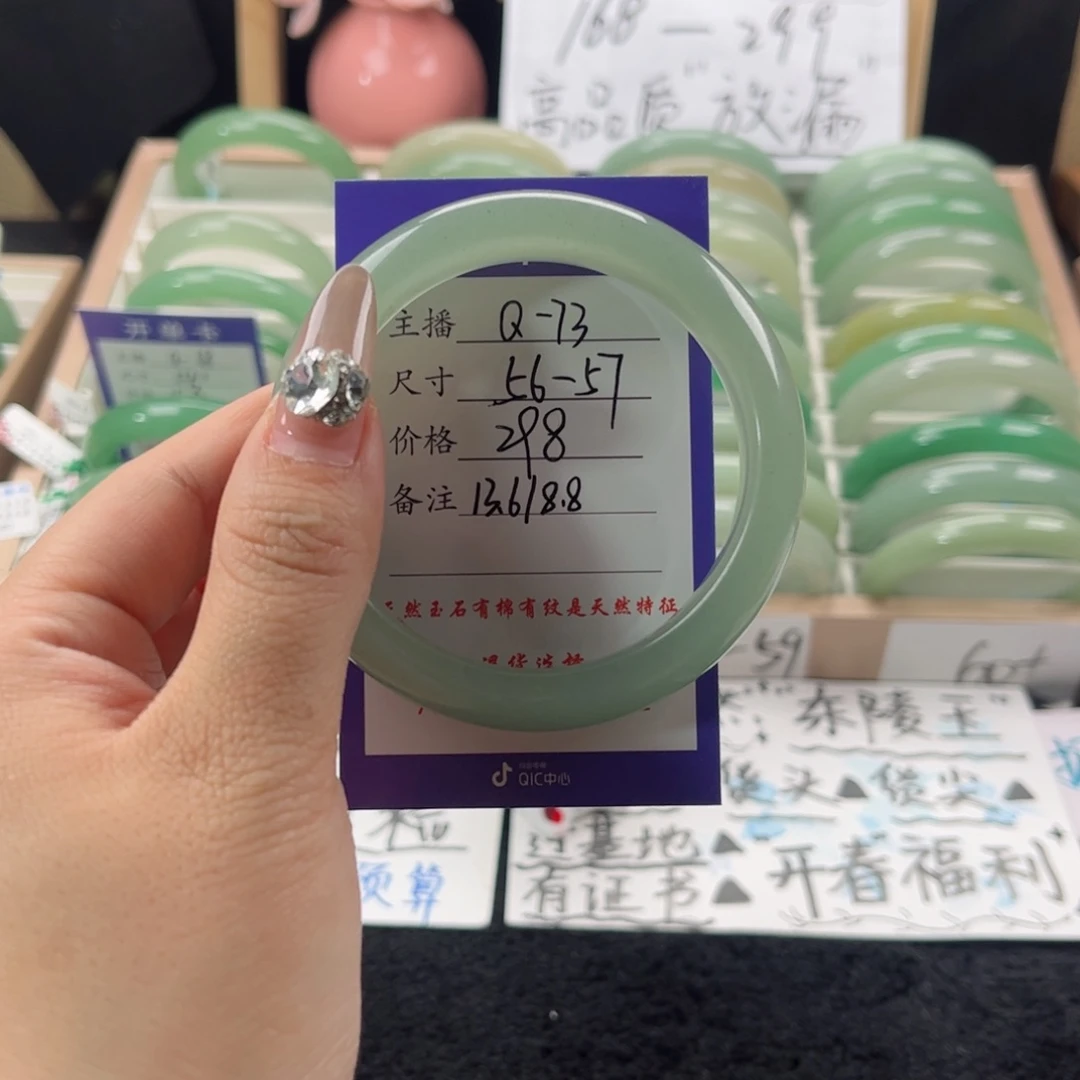 168 — 299
高品质“放漏”
开单卡
主播 Q-73
尺寸 56-57
价格 298
备注 13.6/8.8
然玉石有棉有纹是天然特征
QIC中心
59
60+
“东陵玉”
货头▲货尖▲
过基地▲
有证书▲“开春福利”
预算